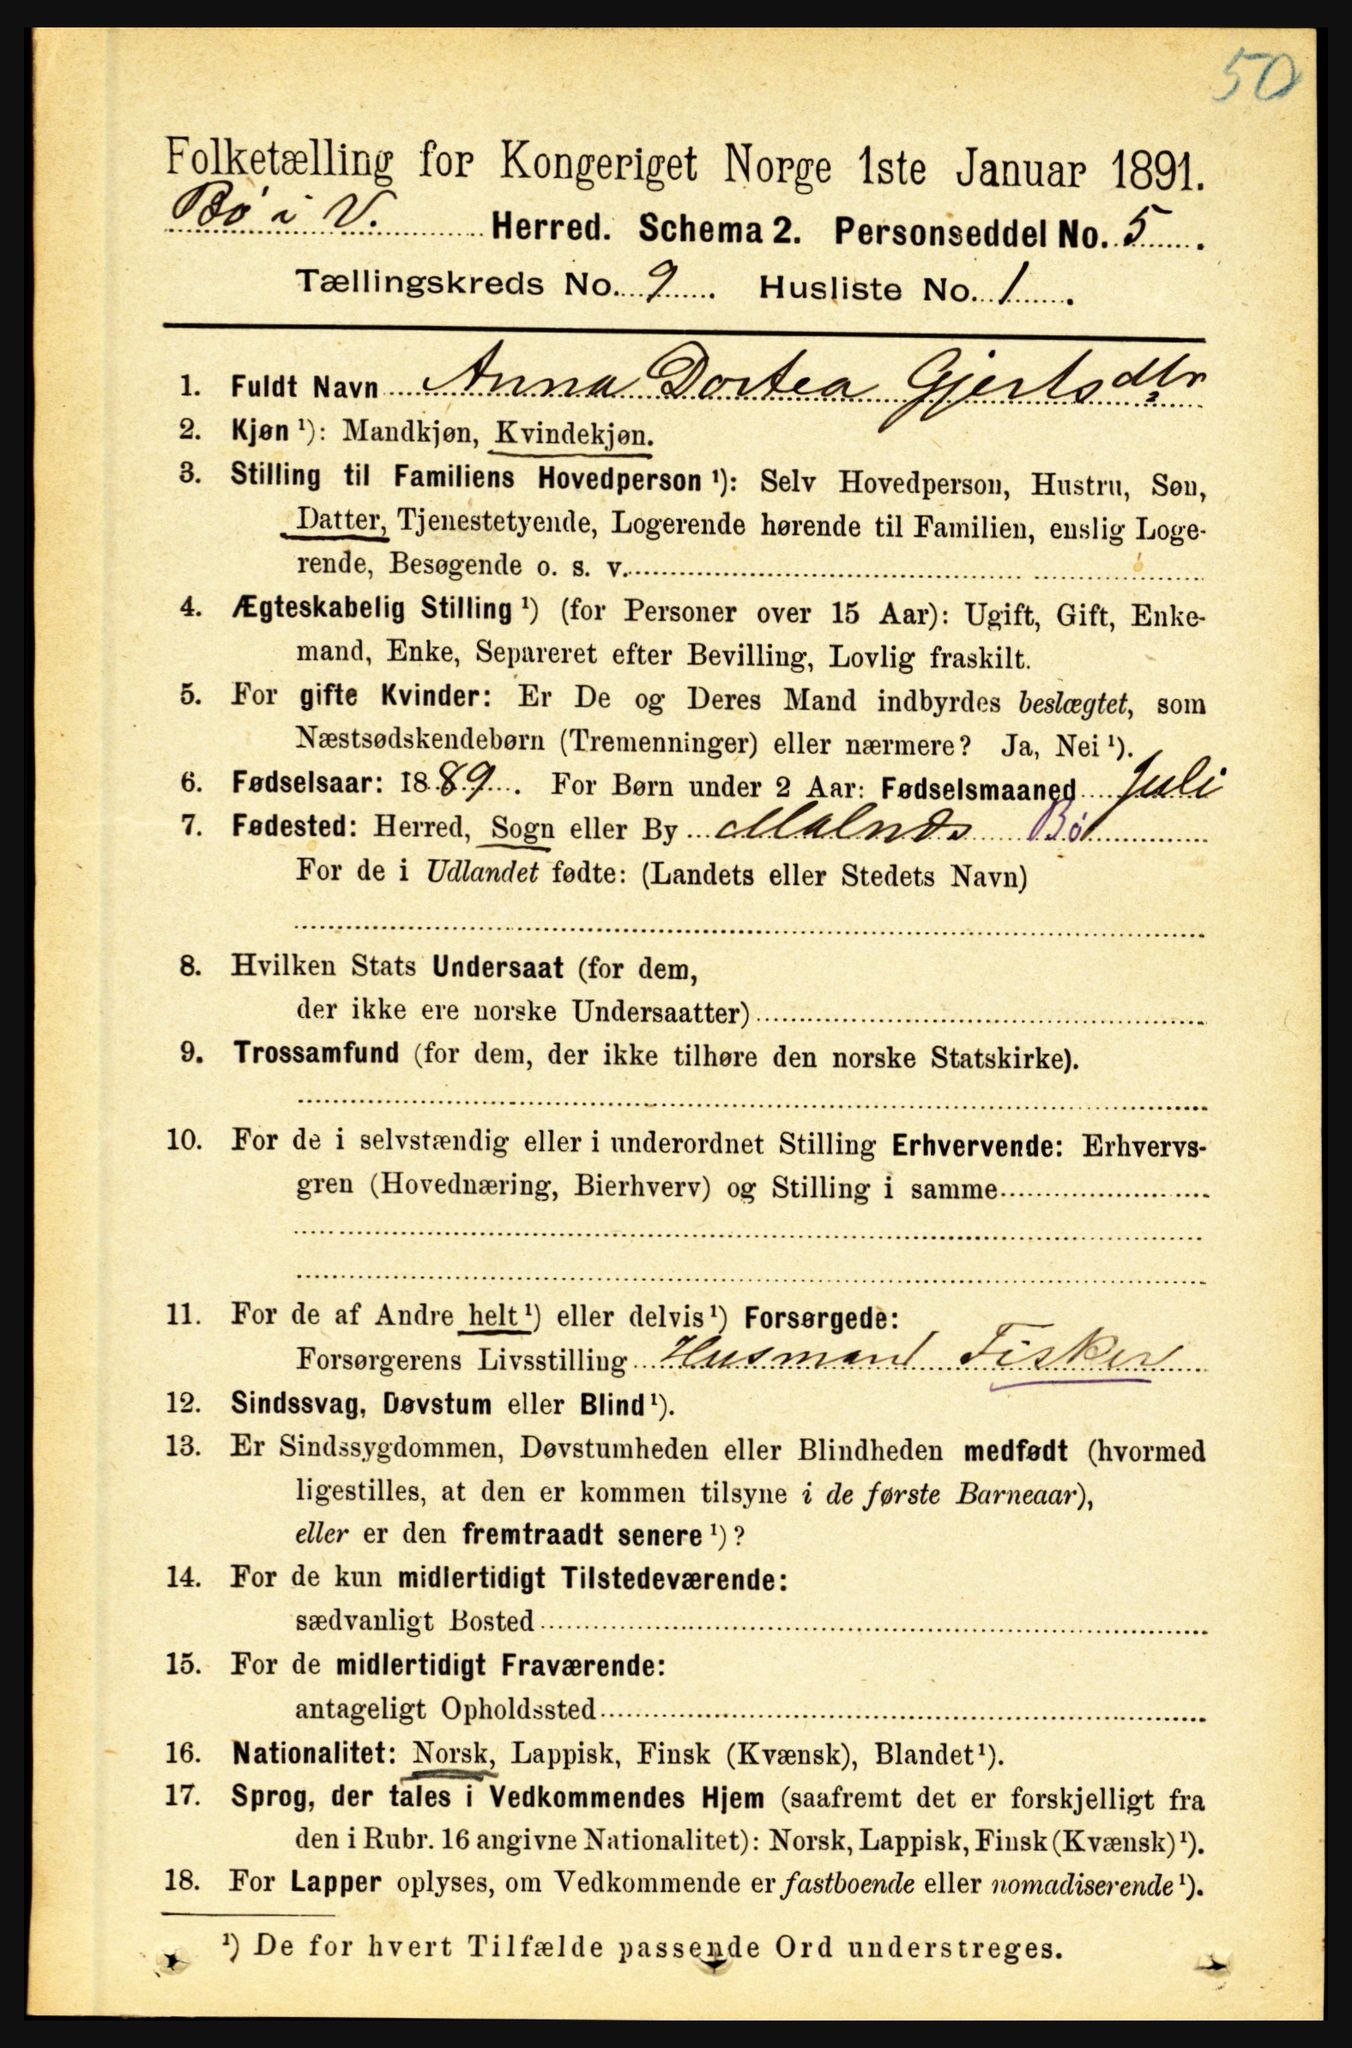 50
Folketælling for Kongeriget Norge 1ste Januar 1891.
Bø i V. Herred. Schema 2. Personseddel No. 5.
Tællingskreds No. 9. Husliste No. 1.
1. Fuldt Navn Anna Dortea Gjertsdtr
2. Kjøn ¹): Mandkjøn, Kvindekjøn.
3. Stilling til Familiens Hovedperson ¹): Selv Hovedperson, Hustru, Søn,
Datter, Tjenestetyende, Logerende hørende til Familien, enslig Loge-
rende, Besøgende o. s. v.
4. Ægteskabelig Stilling ¹) (for Personer over 15 Aar): Ugift, Gift, Enke-
mand, Enke, Separeret efter Bevilling, Lovlig fraskilt.
5. For gifte Kvinder: Er De og Deres Mand indbyrdes beslægtet, som
Næstsødskendebørn (Tremenninger) eller nærmere? Ja, Nei ¹).
6. Fødselsaar: 1889. For Børn under 2 Aar: Fødselsmaaned Juli
7. Fødested: Herred, Sogn eller By Malnæs Bø
For de i Udlandet fødte: (Landets eller Stedets Navn)
8. Hvilken Stats Undersaat (for dem,
der ikke ere norske Undersaatter)
9. Trossamfund (for dem, der ikke tilhøre den norske Statskirke).
10. For de i selvstændig eller i underordnet Stilling Erhvervende: Erhvervs-
gren (Hovednæring, Bierhverv) og Stilling i samme
11. For de af Andre helt ¹) eller delvis ¹) Forsørgede:
Forsørgerens Livsstilling Husmand Fisker
12. Sindssvag, Døvstum eller Blind ¹).
13. Er Sindssygdommen, Døvstumheden eller Blindheden medfødt (hvormed
ligestilles, at den er kommen tilsyne i de første Barneaar),
eller er den fremtraadt senere ¹)?
14. For de kun midlertidigt Tilstedeværende:
sædvanligt Bosted
15. For de midlertidigt Fraværende:
antageligt Opholdssted
16. Nationalitet: Norsk, Lappisk, Finsk (Kvænsk), Blandet ¹).
17. Sprog, der tales i Vedkommendes Hjem (saafremt det er forskjelligt fra
den i Rubr. 16 angivne Nationalitet): Norsk, Lappisk, Finsk (Kvænsk) ¹).
18. For Lapper oplyses, om Vedkommende er fastboende eller nomadiserende ¹).
¹) De for hvert Tilfælde passende Ord understreges.